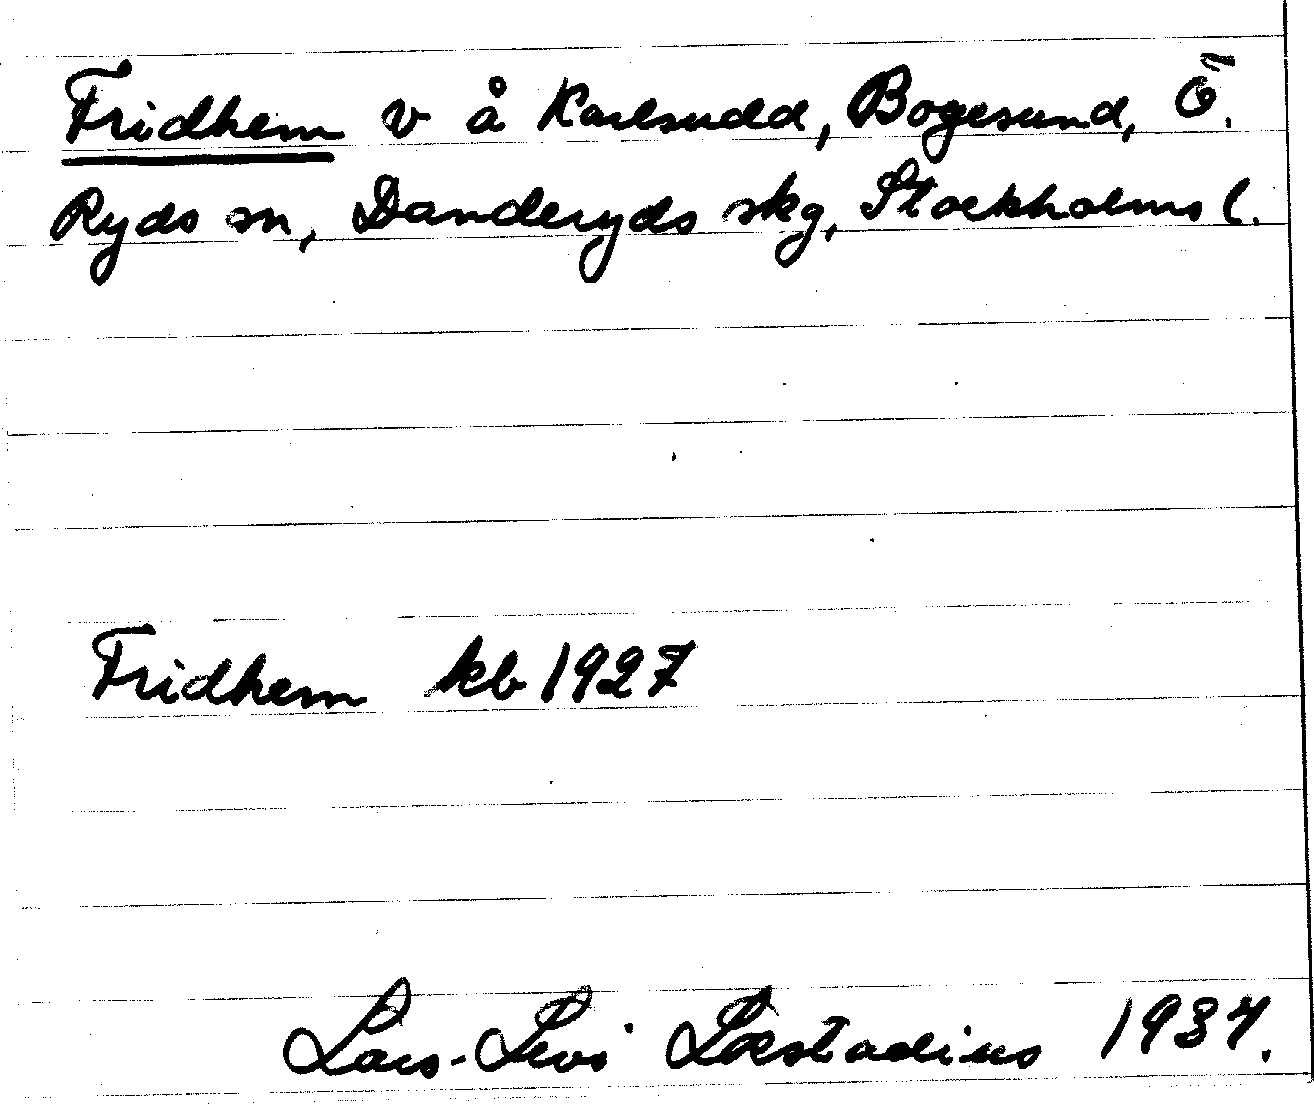 Fridhem v å Karlsudd, Bogesund, Ö.
Ryds sn, Danderyds skg, Stockholms l.
Fridhem kb 1927
Lars-Levi Læstadius 1937.